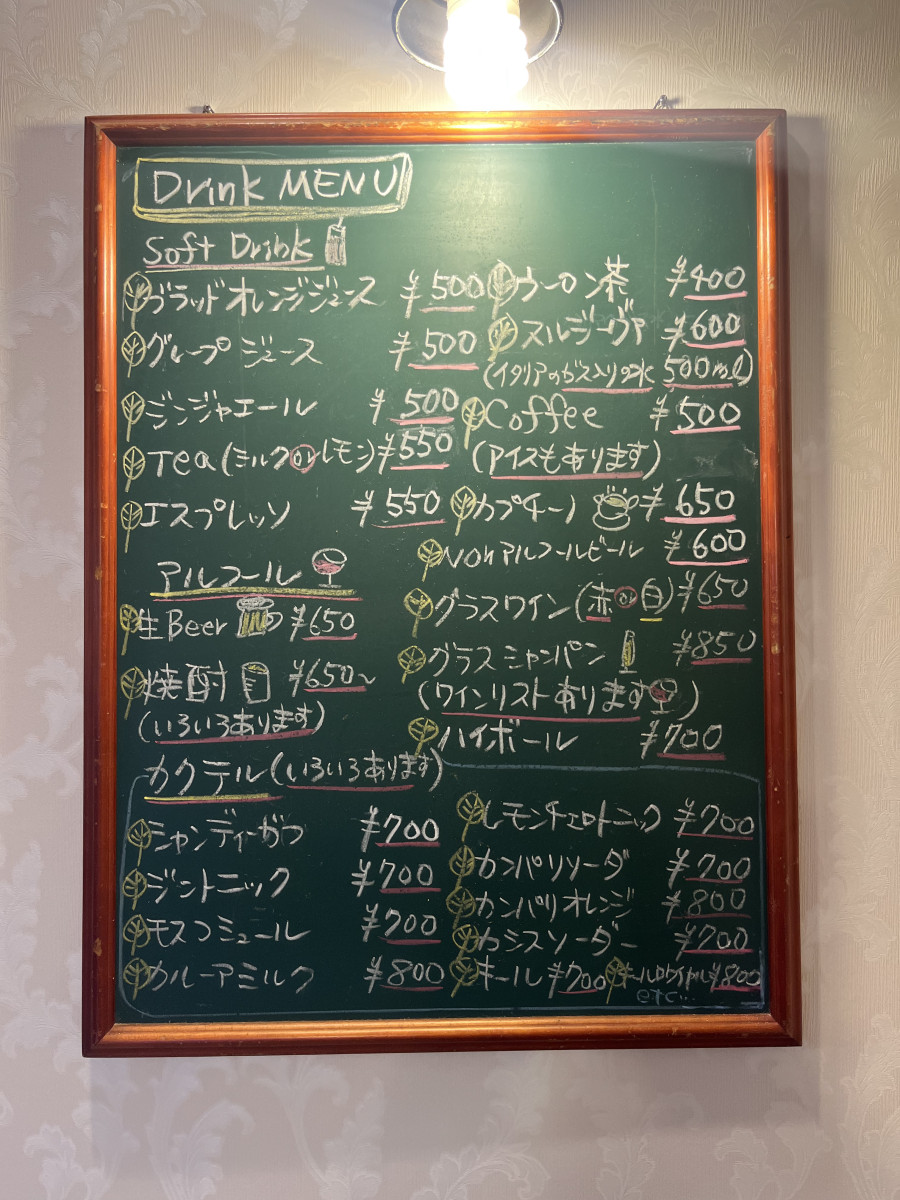 Drink MENU
Soft Drink
ブラッドオレンジジュース ¥500
グレープジュース ¥500
ジンジャエール ¥500
Tea (ミルク or レモン) ¥550
エスプレッソ ¥550
ウーロン茶 ¥400
スルジーヴァ ¥600
(イタリアのガス入りの水 500ml)
Coffee ¥500
(アイスもあります)
カプチーノ ¥650
Nonアルコールビール ¥600
アルコール
生Beer ¥650
焼酎 ¥650~
(いろいろあります)
グラスワイン (赤 or 白) ¥650
グラスシャンパン ¥850
(ワインリストあります)
ハイボール ¥700
カクテル (いろいろあります)
シャンディーガフ ¥700
ジントニック ¥700
モスコミュール ¥700
カルーアミルク ¥800
レモンチェロトニック ¥700
カンパリソーダ ¥700
カンパリオレンジ ¥800
カシスソーダー ¥700
キール ¥700 キールロワイヤル ¥800
etc...